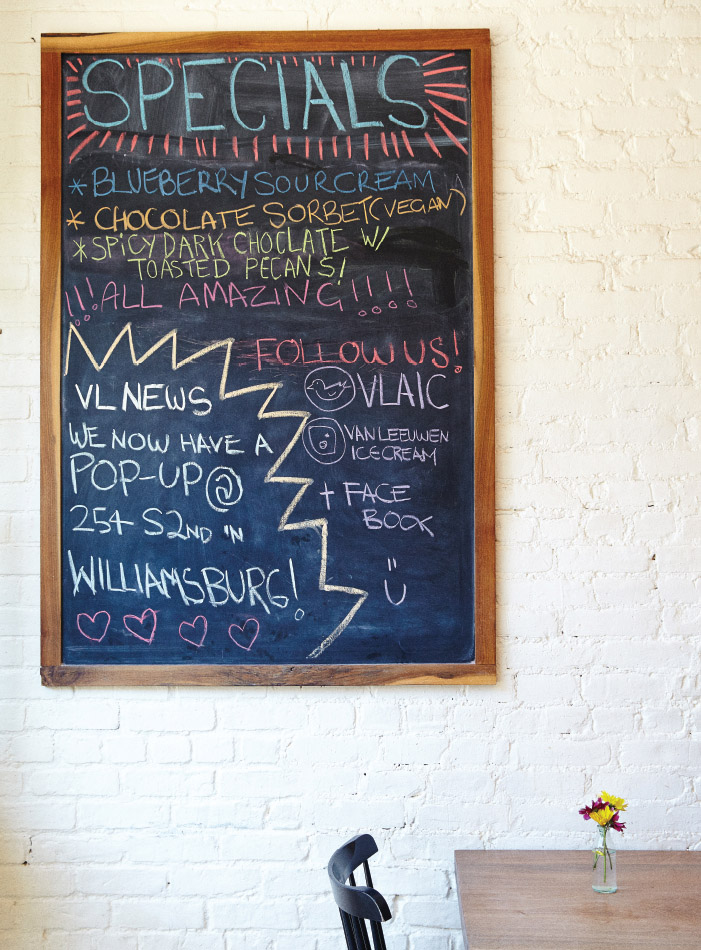 SPECIALS
* BLUEBERRY SOUR CREAM
* CHOCOLATE SORBET (VEGAN)
* SPICY DARK CHOCLATE W/
TOASTED PECANS!
!!! ALL AMAZING!!!!
FOLLOW US!
VLAIC
VAN LEEUWEN
ICE CREAM
+ FACE
BOOK
VL NEWS
WE NOW HAVE A
POP-UP @
254 S 2ND IN
WILLIAMSBURG!